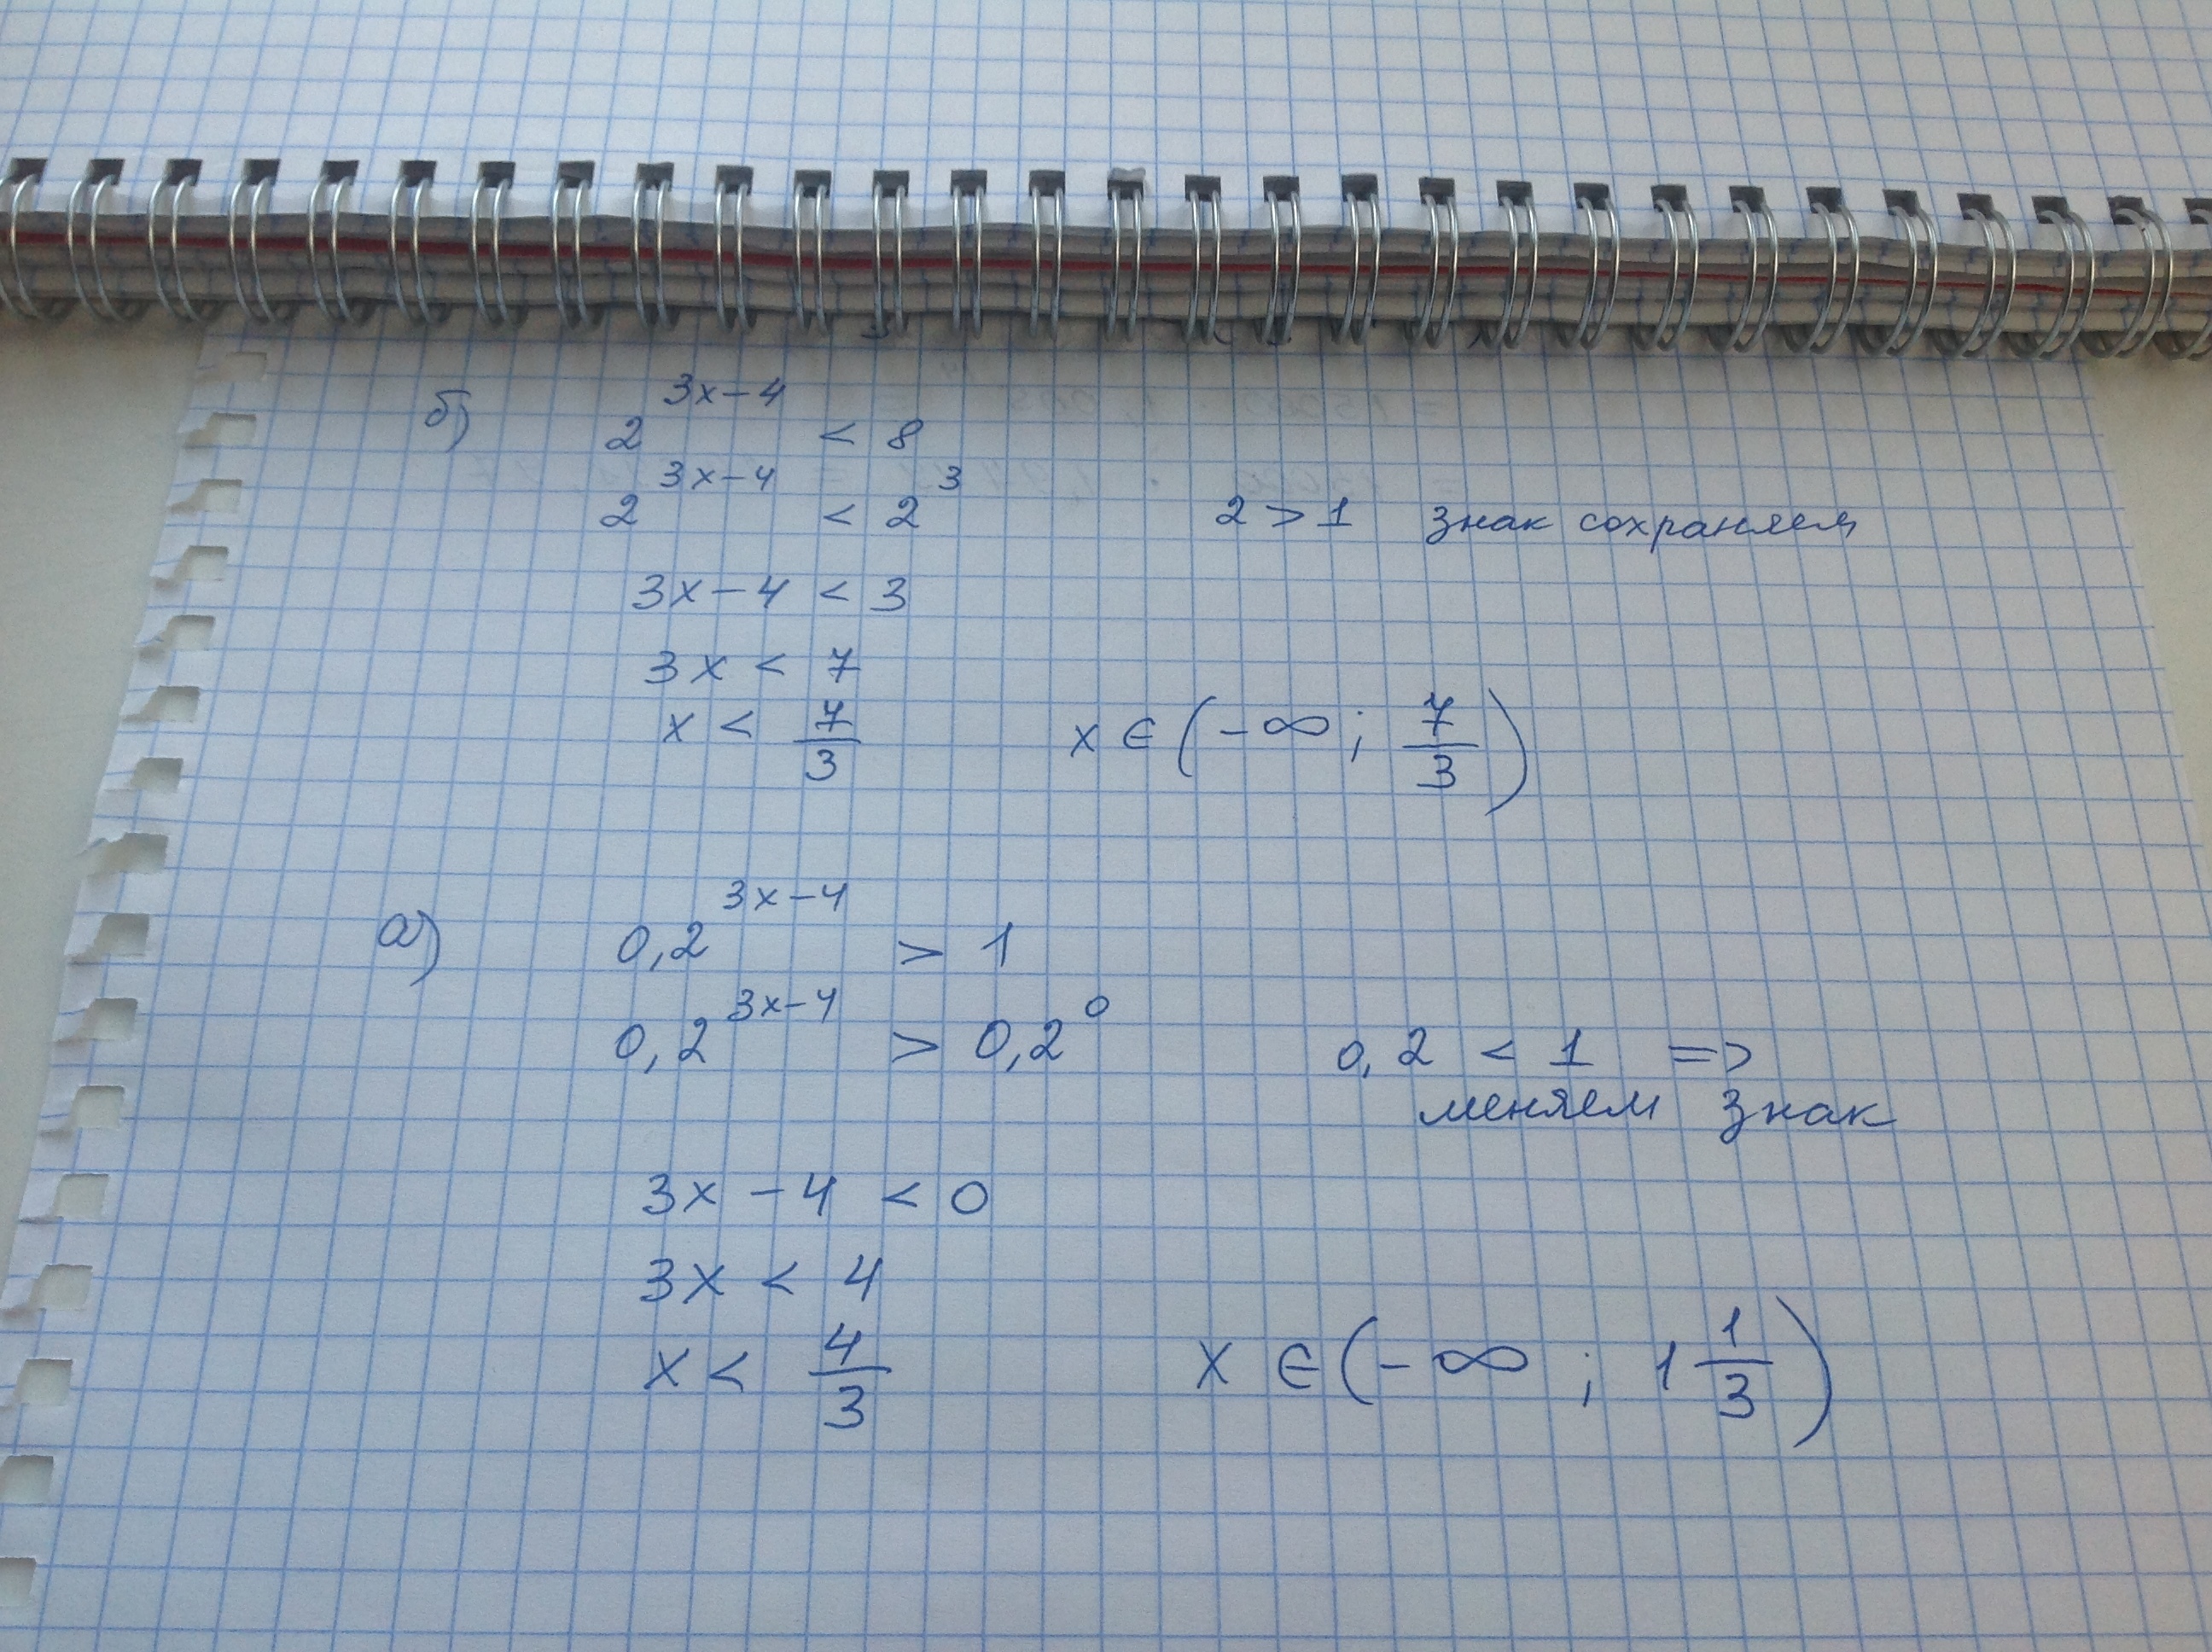 б) 2^(3x-4) < 8
2^(3x-4) < 2^3 2 > 1 знак сохраняем
3x-4 < 3
3x < 7
x < 7/3 x ∈ (-∞; 7/3)
а) 0,2^(3x-4) > 1
0,2^(3x-4) > 0,2^0 0,2 < 1 =>
меняем знак
3x - 4 < 0
3x < 4
x < 4/3 x ∈ (-∞; 1 1/3)